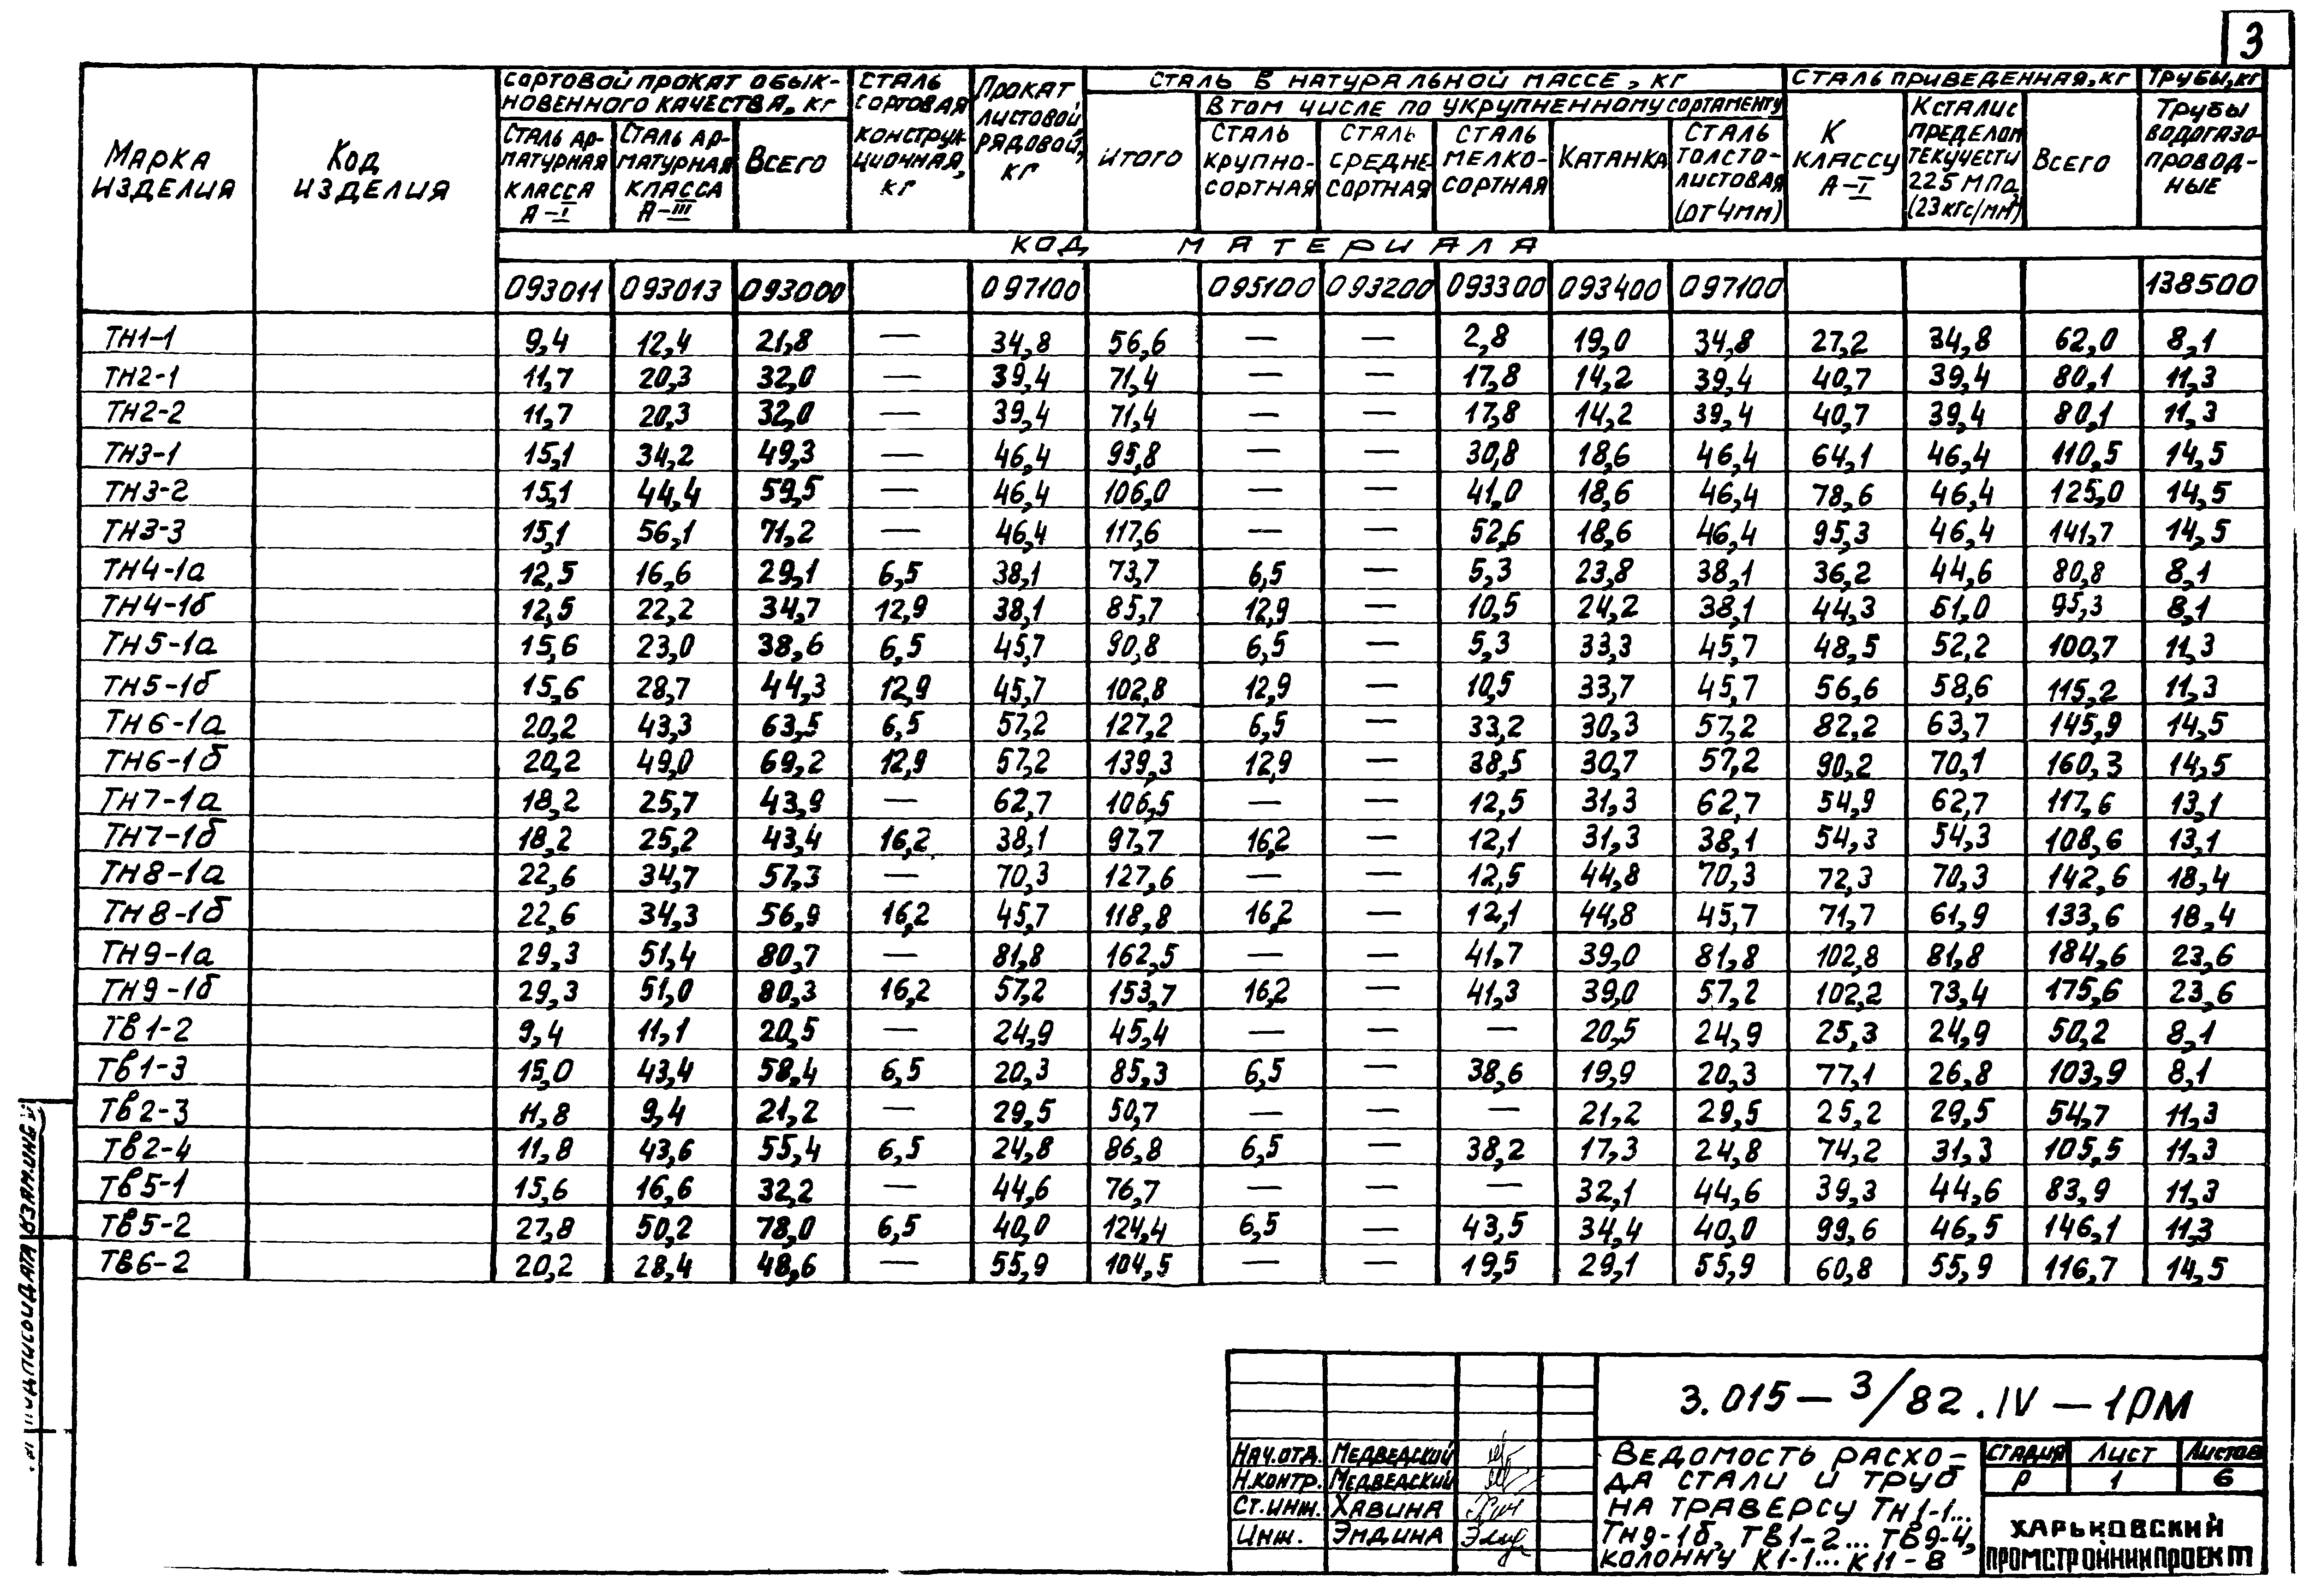 3
МАРКА ИЗДЕЛИЯ
КОД ИЗДЕЛИЯ
СОРТОВОЙ ПРОКАТ ОБЫК-
НОВЕННОГО КАЧЕСТВА, КГ
СТАЛЬ АР-
МАТУРНАЯ
КЛАССА
А-I
СТАЛЬ АР-
МАТУРНАЯ
КЛАССА
А-III
ВСЕГО
СТАЛЬ
СОРТОВАЯ
КОНСТРУК-
ЦИОННАЯ,
КГ
ПРОКАТ
ЛИСТОВОЙ
РЯДОВОЙ,
КГ
СТАЛЬ В НАТУРАЛЬНОЙ МАССЕ, КГ
ИТОГО
В ТОМ ЧИСЛЕ ПО УКРУПНЕННОМУ СОРТАМЕНТУ
СТАЛЬ
КРУПНО-
СОРТНАЯ
СТАЛЬ
СРЕДНЕ-
СОРТНАЯ
СТАЛЬ
МЕЛКО-
СОРТНАЯ
КАТАНКА
СТАЛЬ
ТОЛСТО-
ЛИСТОВАЯ
(ОТ 4 ММ)
СТАЛЬ ПРИВЕДЕННАЯ, КГ
К
КЛАССУ
А-I
К СТАЛИ С
ПРЕДЕЛОМ
ТЕКУЧЕСТИ
225 МПа
(23 кгс/мм²)
ВСЕГО
ТРУБЫ, КГ
ТРУБЫ
ВОДОГАЗО-
ПРОВОД-
НЫЕ
КОД МАТЕРИАЛА
093011 093013 093000 097100 095100 093200 093300 093400 097100 138500
ТН1-1 9,4 12,4 21,8 — 34,8 56,6 — — 2,8 19,0 34,8 27,2 34,8 62,0 8,1
ТН2-1 11,7 20,3 32,0 — 39,4 71,4 — — 17,8 14,2 39,4 40,7 39,4 80,1 11,3
ТН2-2 11,7 20,3 32,0 — 39,4 71,4 — — 17,8 14,2 39,4 40,7 39,4 80,1 11,3
ТН3-1 15,1 34,2 49,3 — 46,4 95,8 — — 30,8 18,6 46,4 64,1 46,4 110,5 14,5
ТН3-2 15,1 44,4 59,5 — 46,4 106,0 — — 41,0 18,6 46,4 78,6 46,4 125,0 14,5
ТН3-3 15,1 56,1 71,2 — 46,4 117,6 — — 52,6 18,6 46,4 95,3 46,4 141,7 14,5
ТН4-1а 12,5 16,6 29,1 6,5 38,1 73,7 6,5 — 5,3 23,8 38,1 36,2 44,6 80,8 8,1
ТН4-1б 12,5 22,2 34,7 12,9 38,1 85,7 12,9 — 10,5 24,2 38,1 44,3 51,0 95,3 8,1
ТН5-1а 15,6 23,0 38,6 6,5 45,7 90,8 6,5 — 5,3 33,3 45,7 48,5 52,2 100,7 11,3
ТН5-1б 15,6 28,7 44,3 12,9 45,7 102,8 12,9 — 10,5 33,7 45,7 56,6 58,6 115,2 11,3
ТН6-1а 20,2 43,3 63,5 6,5 57,2 127,2 6,5 — 33,2 30,3 57,2 82,2 63,7 145,9 14,5
ТН6-1б 20,2 49,0 69,2 12,9 57,2 139,3 12,9 — 38,5 30,7 57,2 90,2 70,1 160,3 14,5
ТН7-1а 18,2 25,7 43,9 — 62,7 106,5 — — 12,5 31,3 62,7 54,9 62,7 117,6 13,1
ТН7-1б 18,2 25,2 43,4 16,2 38,1 97,7 16,2 — 12,1 31,3 38,1 54,3 54,3 108,6 13,1
ТН8-1а 22,6 34,7 57,3 — 70,3 127,6 — — 12,5 44,8 70,3 72,3 70,3 142,6 18,4
ТН8-1б 22,6 34,3 56,9 16,2 45,7 118,8 16,2 — 12,1 44,8 45,7 71,7 61,9 133,6 18,4
ТН9-1а 29,3 51,4 80,7 — 81,8 162,5 — — 41,7 39,0 81,8 102,8 81,8 184,6 23,6
ТН9-1б 29,3 51,0 80,3 16,2 57,2 153,7 16,2 — 41,3 39,0 57,2 102,2 73,4 175,6 23,6
ТВ1-2 9,4 11,1 20,5 — 24,9 45,4 — — — 20,5 24,9 25,3 24,9 50,2 8,1
ТВ1-3 15,0 43,4 58,4 6,5 20,3 85,3 6,5 — 38,6 19,9 20,3 77,1 26,8 103,9 8,1
ТВ2-3 11,8 9,4 21,2 — 29,5 50,7 — — — 21,2 29,5 25,2 29,5 54,7 11,3
ТВ2-4 11,8 43,6 55,4 6,5 24,8 86,8 6,5 — 38,2 17,3 24,8 74,2 31,3 105,5 11,3
ТВ5-1 15,6 16,6 32,2 — 44,6 76,7 — — — 32,1 44,6 39,3 44,6 83,9 11,3
ТВ5-2 27,8 50,2 78,0 6,5 40,0 124,4 6,5 — 43,5 34,4 40,0 99,6 46,5 146,1 11,3
ТВ6-2 20,2 28,4 48,6 — 55,9 104,5 — — 19,5 29,1 55,9 60,8 55,9 116,7 14,5
ПОДПИСЬ И ДАТА ВЗАМ.ИНВ
3.015-3/82.IV-1РМ
НАЧ.ОТД. МЕДВЕДСКИЙ
Н.КОНТР. МЕДВЕДСКИЙ
СТ.ИНЖ. ХАВИНА
ИНЖ. ЭНДИНА
ВЕДОМОСТЬ РАСХО-
ДА СТАЛИ И ТРУБ
НА ТРАВЕРСУ ТН1-1...
ТН9-1б, ТВ1-2...ТВ9-4,
КОЛОННУ К1-1...К11-8
СТАДИЯ ЛИСТ ЛИСТОВ
Р 1 6
ХАРЬКОВСКИЙ
ПРОМСТРОЙНИИПРОЕКТ